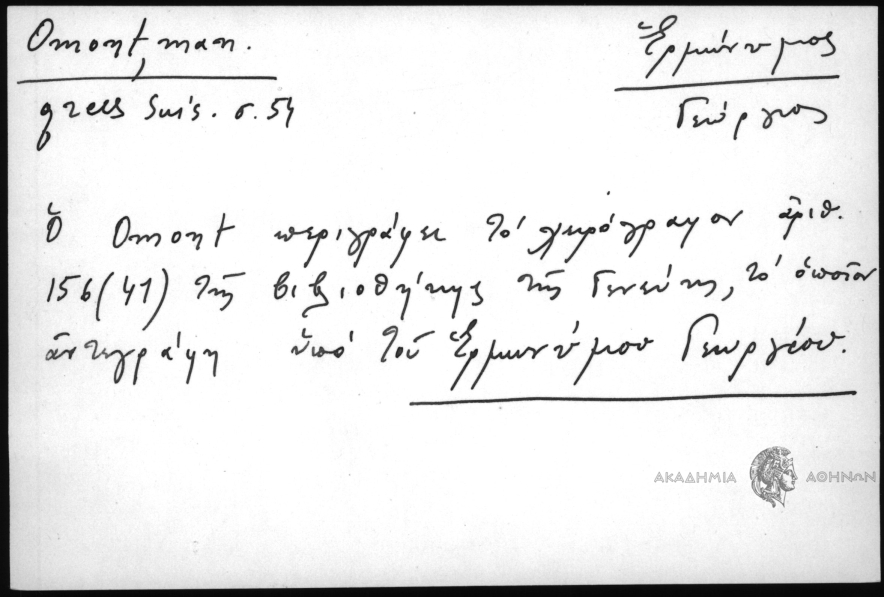 Omont, man. Ἑρμώνυμος
grecs Suis. σ. 54 Γεώργιος
Ὁ Omont περιγράφει τό χειρόγραφον ἀριθ.
156 (41) τῆς βιβλιοθήκης τῆς Γενεύης, τό ὁποῖον
ἀντεγράφη ὑπό τοῦ Ἑρμωνύμου Γεωργίου.
ΑΚΑΔΗΜΙΑ ΑΘΗΝΩΝ